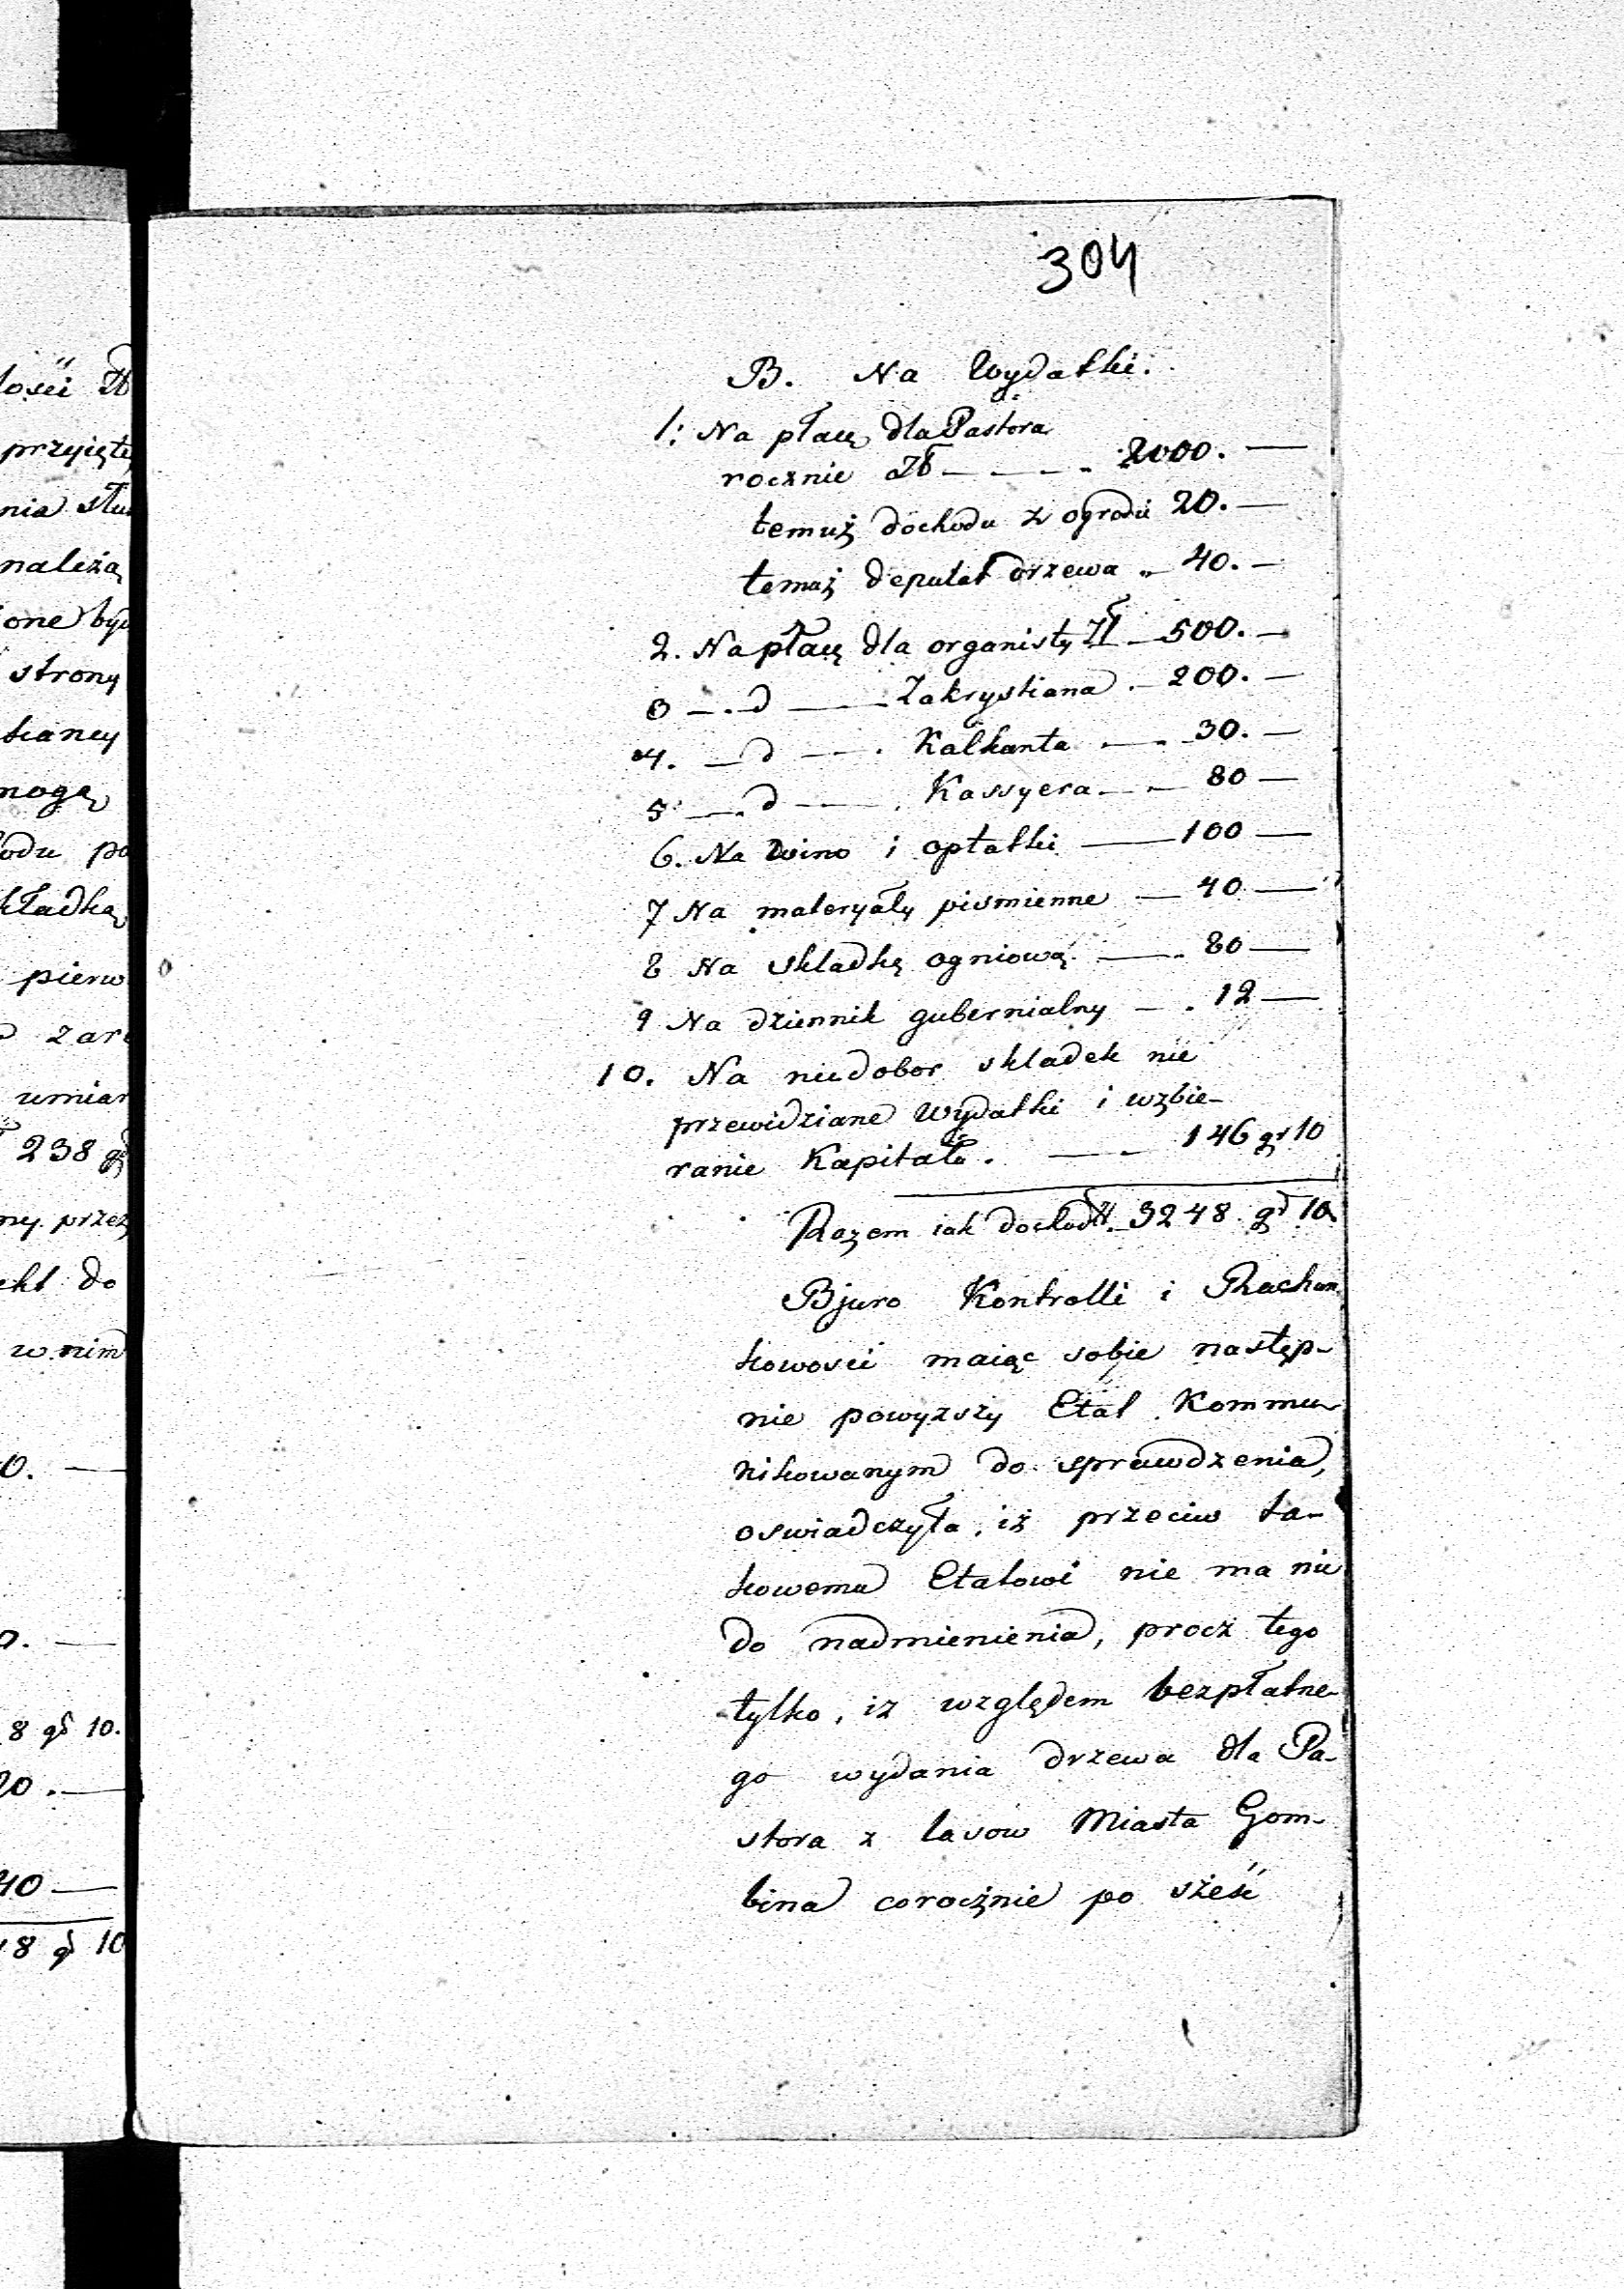 304
B. Na Wydatki.
1. Na płacę dla Pastora
rocznie Zł — — — 2000. —
temuż dochodu z ogrodu 20. —
temuż deputat drzewa „ 40. —
2. Na płacę dla organisty Zł — 500. —
3 — . d — Zakrystiana . — 200. —
4. — d — . Kalkanta . — . 30. —
5 — . d — . Kassyera — — 80 —
6. Na Wino i opłatki — 100 —
7 Na materyały pismienne — 40 —
8 Na składkę ogniową — . 80 —
9 Na dziennik gubernialny — . 12 —
10. Na niedobor składek nie
przewidziane Wydatki i wzbie-
ranie Kapitału. — — 146 gr 10
Razem iak dochodu Zł. 3248 gr 10.
Bjuro Kontrolli i Rachun
kowości maiąc sobie następ-
nie powyższy Etat Kommu-
nikowanym do sprawdzenia,
oswiadczyła, iż przeciw ta-
kowemu Etatowi nie ma nic
do nadmienienia, procz tego
tylko, iz względem bezpłatne-
go wydania drzewa dla Pa-
stora z lasow Miasta Gom-
bina corocznie po sześć
lości Zł
przyięte
nia słu
należą
one być
strony
mogą
odu po
kładką
pierw
umiar
238 gr
ny przez
ekt do
w nim
0. —
0. —
8 gr 10.
20. —
40 —
48 gr 10